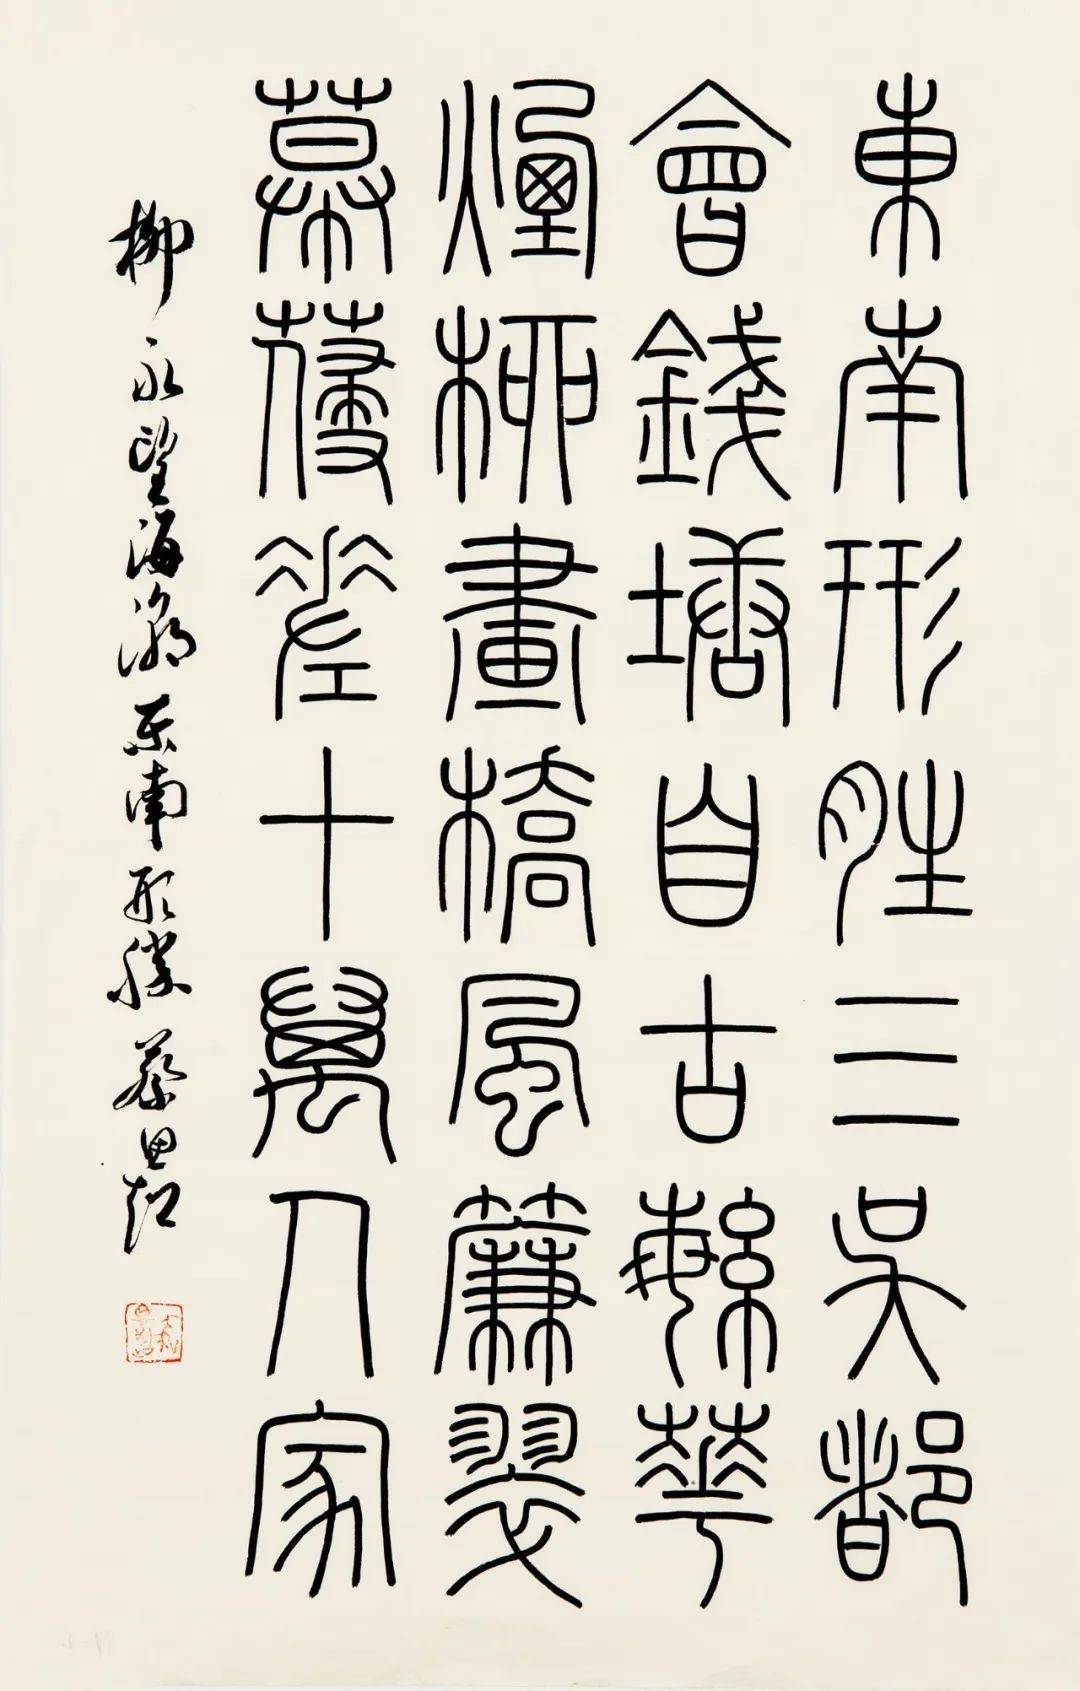 東南形胜三吳都
會錢塘自古繁華
煙柳畫橋風簾翠
幕葠差十萬人家
柳永望海潮東南形勝 蔡思超